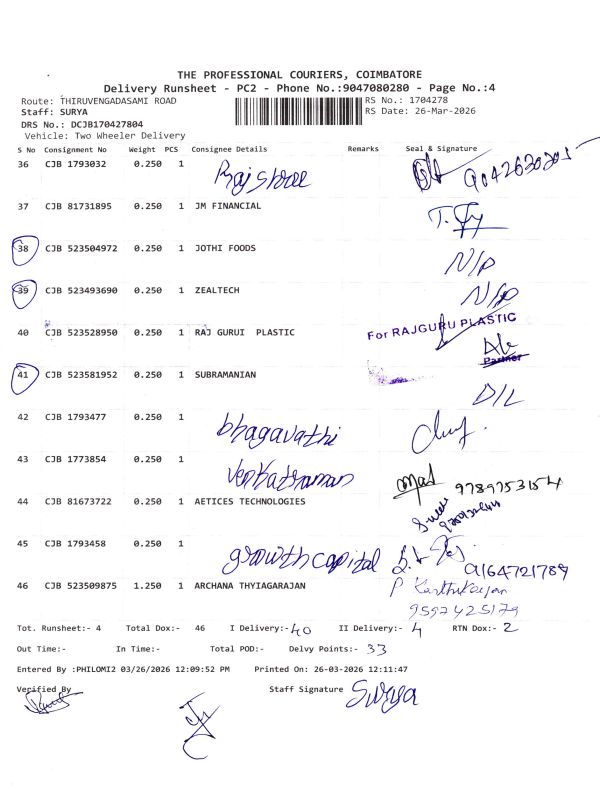 THE PROFESSIONAL COURIERS, COIMBATORE
Delivery Runsheet - PC2 - Phone No.:9047080280 - Page No.:4
Route: THIRUVENGADASAMI ROAD RS No.: 1704278
Staff: SURYA RS Date: 26-Mar-2026
DRS No.: DCJB170427804
Vehicle: Two Wheeler Delivery
S No Consignment No Weight PCS Consignee Details Remarks Seal & Signature
36 CJB 1793032 0.250 1 Rajshree 9042630205
37 CJB 81731895 0.250 1 JM FINANCIAL
38 CJB 523504972 0.250 1 JOTHI FOODS N/P
39 CJB 523493690 0.250 1 ZEALTECH N/P
40 CJB 523528950 0.250 1 RAJ GURUI PLASTIC For RAJGURU PLASTIC
Partner
41 CJB 523581952 0.250 1 SUBRAMANIAN D/L
42 CJB 1793477 0.250 1 bhagavathi
43 CJB 1773854 0.250 1 venkatraman 9789753154
44 CJB 81673722 0.250 1 AETICES TECHNOLOGIES
45 CJB 1793458 0.250 1 growth capital 9164721789
46 CJB 523509875 1.250 1 ARCHANA THYIAGARAJAN P Karthikeyan
9597425179
Tot. Runsheet:- 4 Total Dox:- 46 I Delivery:- 40 II Delivery:- 4 RTN Dox:- 2
Out Time:- In Time:- Total POD:- Delvy Points:- 33
Entered By :PHILOMI2 03/26/2026 12:09:52 PM Printed On: 26-03-2026 12:11:47
Verified By Staff Signature Surya